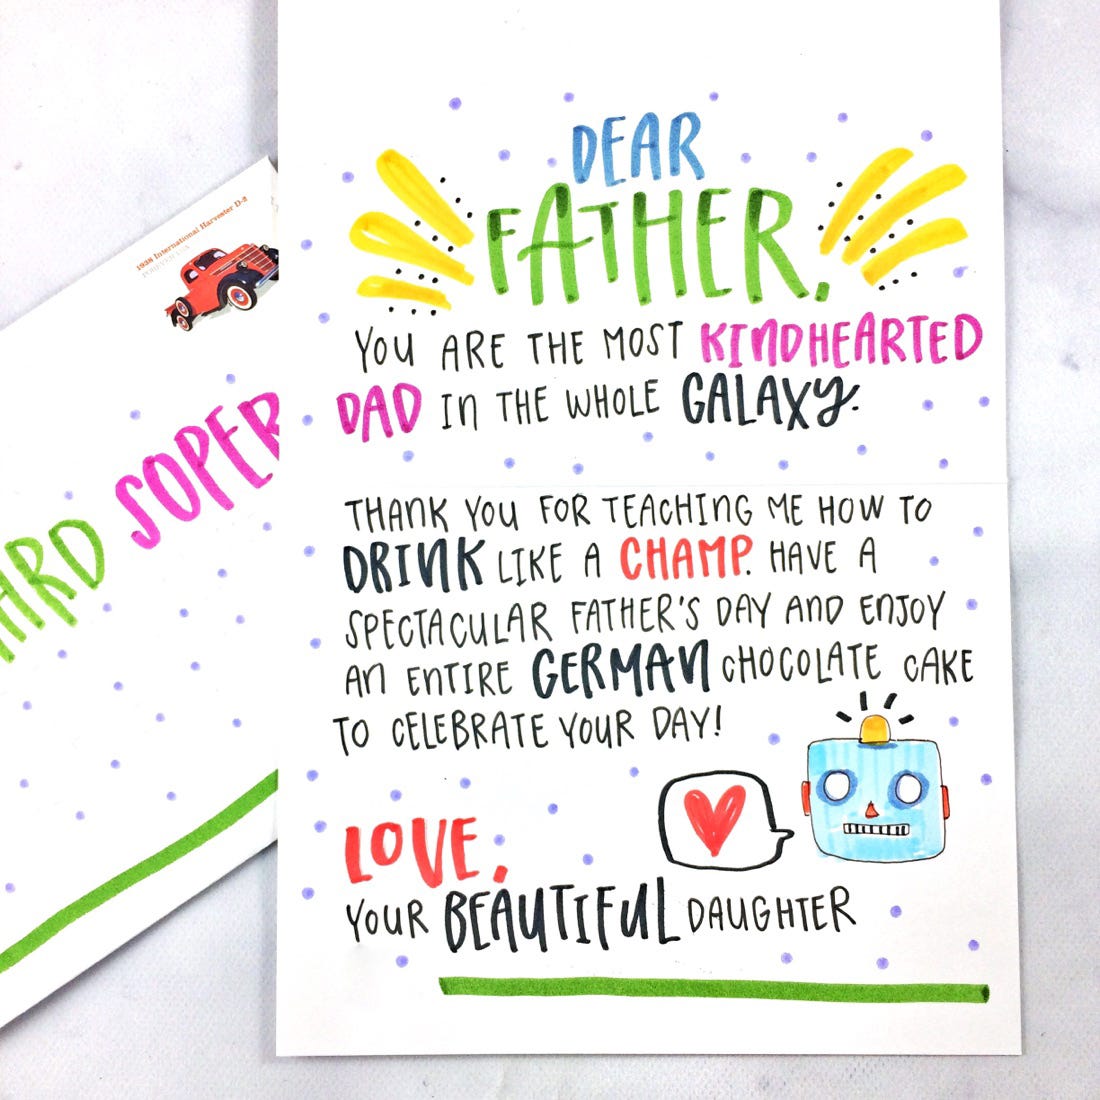 1938 International Harvester D-2
FOREVER USA
ARD SOPER
DEAR
FATHER,
YOU ARE THE MOST KINDHEARTED
DAD IN THE WHOLE GALAXY.
THANK YOU FOR TEACHING ME HOW TO
DRINK LIKE A CHAMP. HAVE A
SPECTACULAR FATHER'S DAY AND ENJOY
AN ENTIRE GERMAN CHOCOLATE CAKE
TO CELEBRATE YOUR DAY!
LOVE,
YOUR BEAUTIFUL DAUGHTER